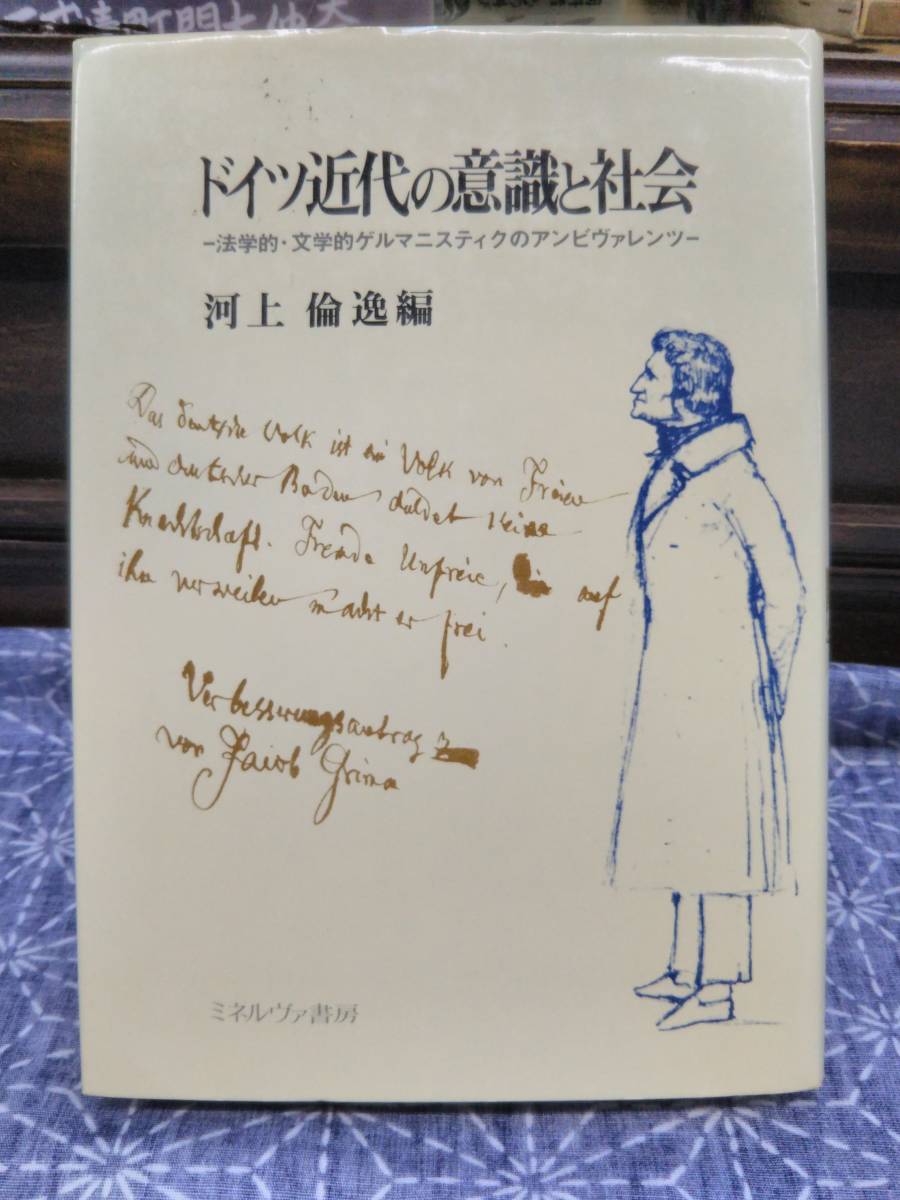 ドイツ近代の意識と社会
–法学的・文学的ゲルマニスティクのアンビヴァレンツ–
河上 倫逸編
Das deutsche Volk ist ein Volk von Freien
und deutscher Boden duldet keine
Knechtschaft. Fremde Unfreie, die auf
ihm verweilen macht er frei.
Verbesserungsantrag
von Jacob Grimm
ミネルヴァ書房